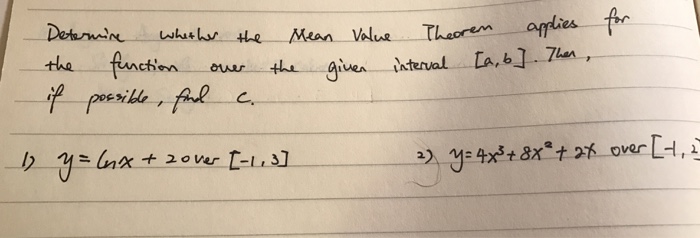 Determine whether the Mean Value Theorem applies for
the function over the given interval [a,b]. Then,
if possible, find c.
1) y = ln x + 2 over [-1, 3]
2) y = 4x³ + 8x² + 2x over [-1, 2